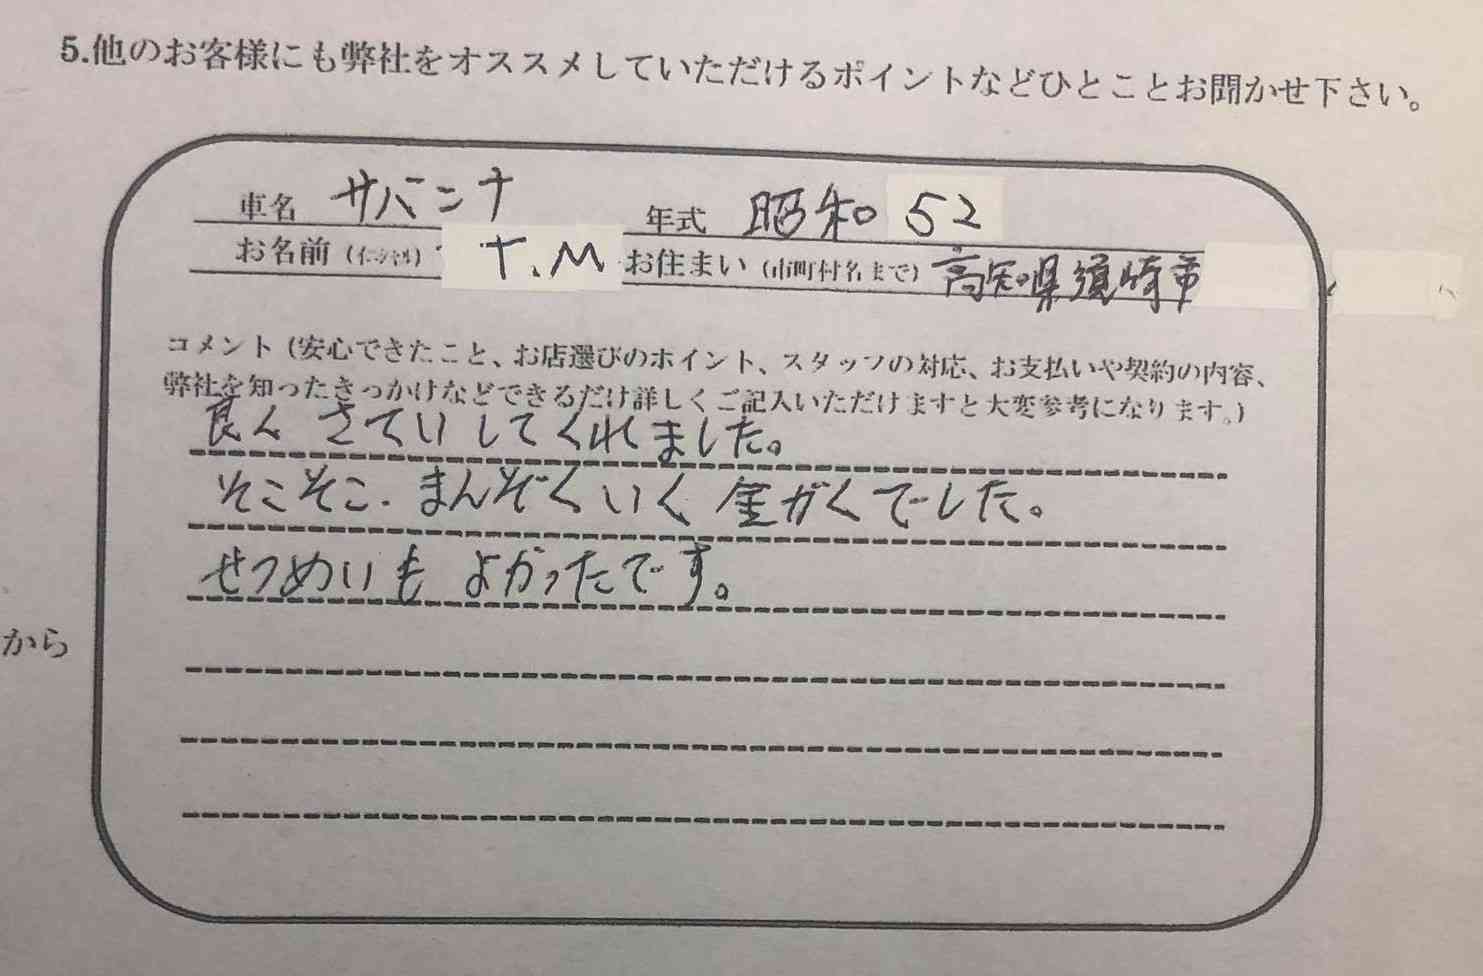 5.他のお客様にも弊社をオススメしていただけるポイントなどひとことお聞かせ下さい。
車名 サバンナ 年式 昭和 52
お名前(イニシャル) T.M お住まい(市町村名まで) 高知県須崎市
コメント(安心できたこと、お店選びのポイント、スタッフの対応、お支払いや契約の内容、
弊社を知ったきっかけなどできるだけ詳しくご記入いただけますと大変参考になります。)
良く さていしてくれました。
そこそこ.まんぞくいく 金がくでした。
せつめいも よかったです。
から